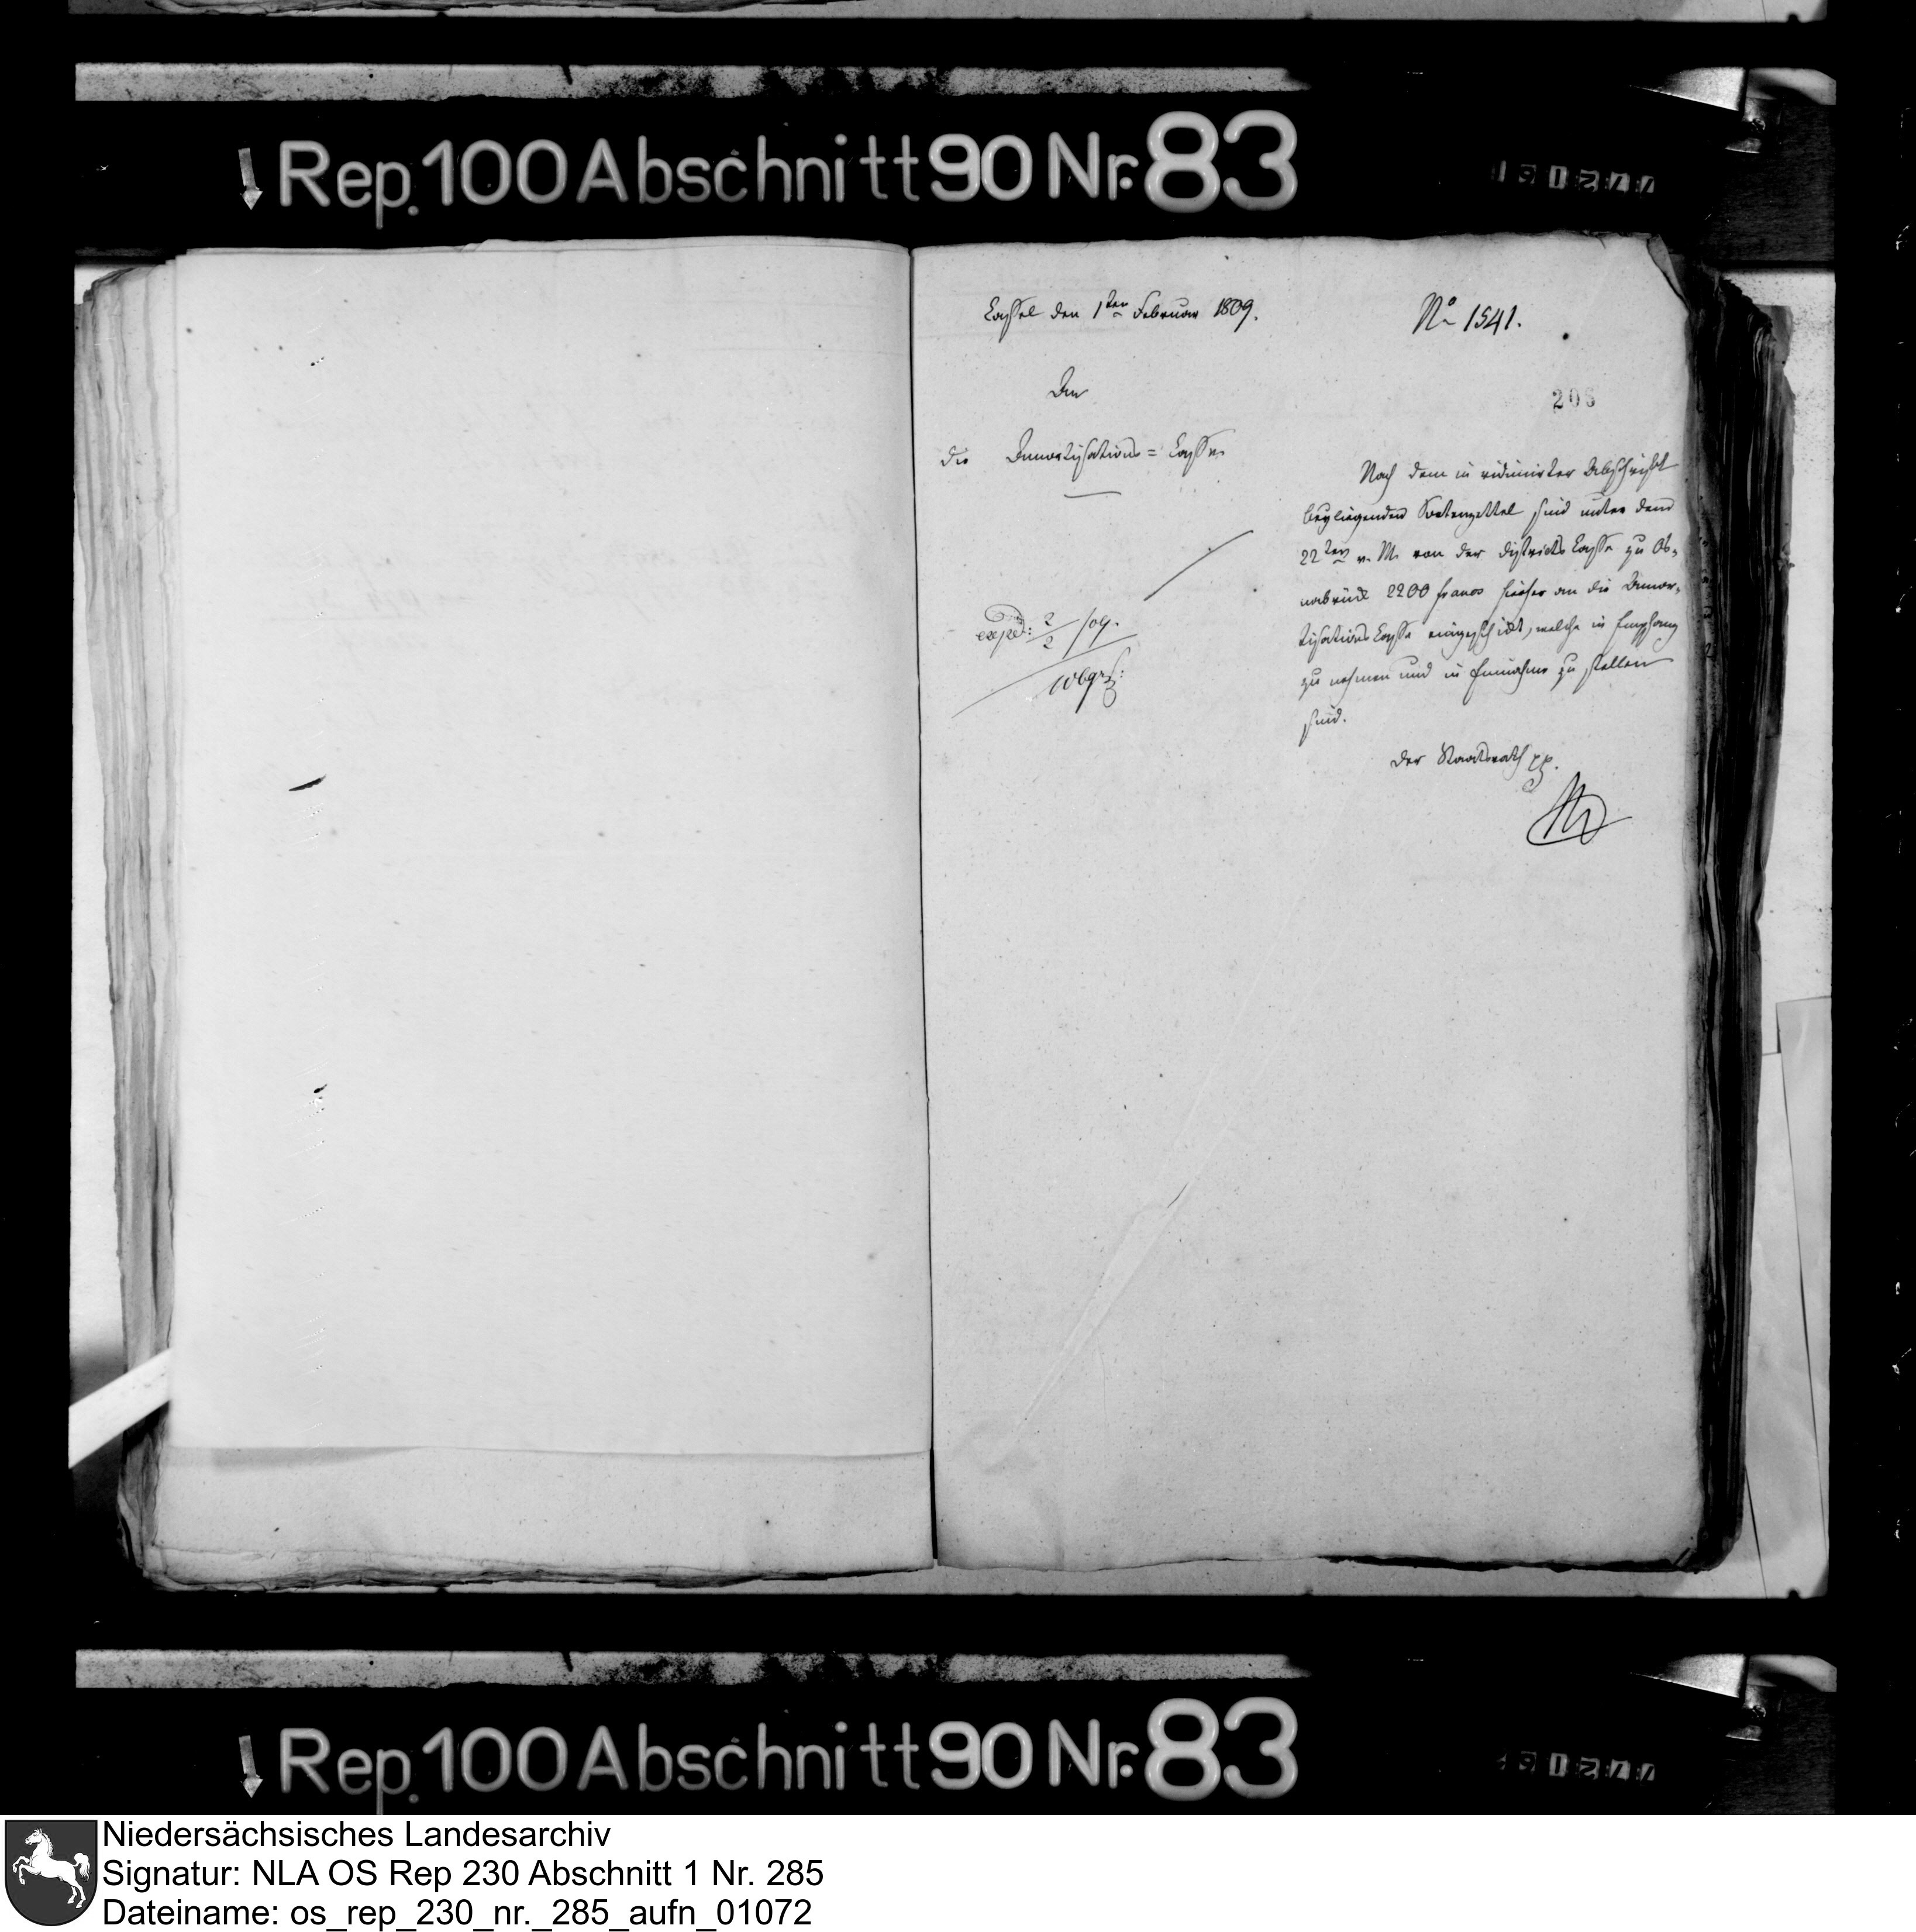 Rep. 100 Abschnitt 90 Nr. 83
Cassel den 1ten Februar 1809.
No 1541.
An
die Amortisations=Casse
208
Nach dem in vidimirter Abschrift
beyliegenden Sortenzettel sind unter dem
22ten v. M. von der Districts Casse zu Os-
nabrück 2200 francs hieher an die Amor-
tisations Casse eingeschickt, welche in Empfang
zu nehmen und in Einnahme zu stellen
sind.
Der Staatsrath pp.
exped: 2/2 /09.
Rep. 100 Abschnitt 90 Nr. 83
Niedersächsisches Landesarchiv
Signatur: NLA OS Rep 230 Abschnitt 1 Nr. 285
Dateiname: os_rep_230_nr._285_aufn_01072